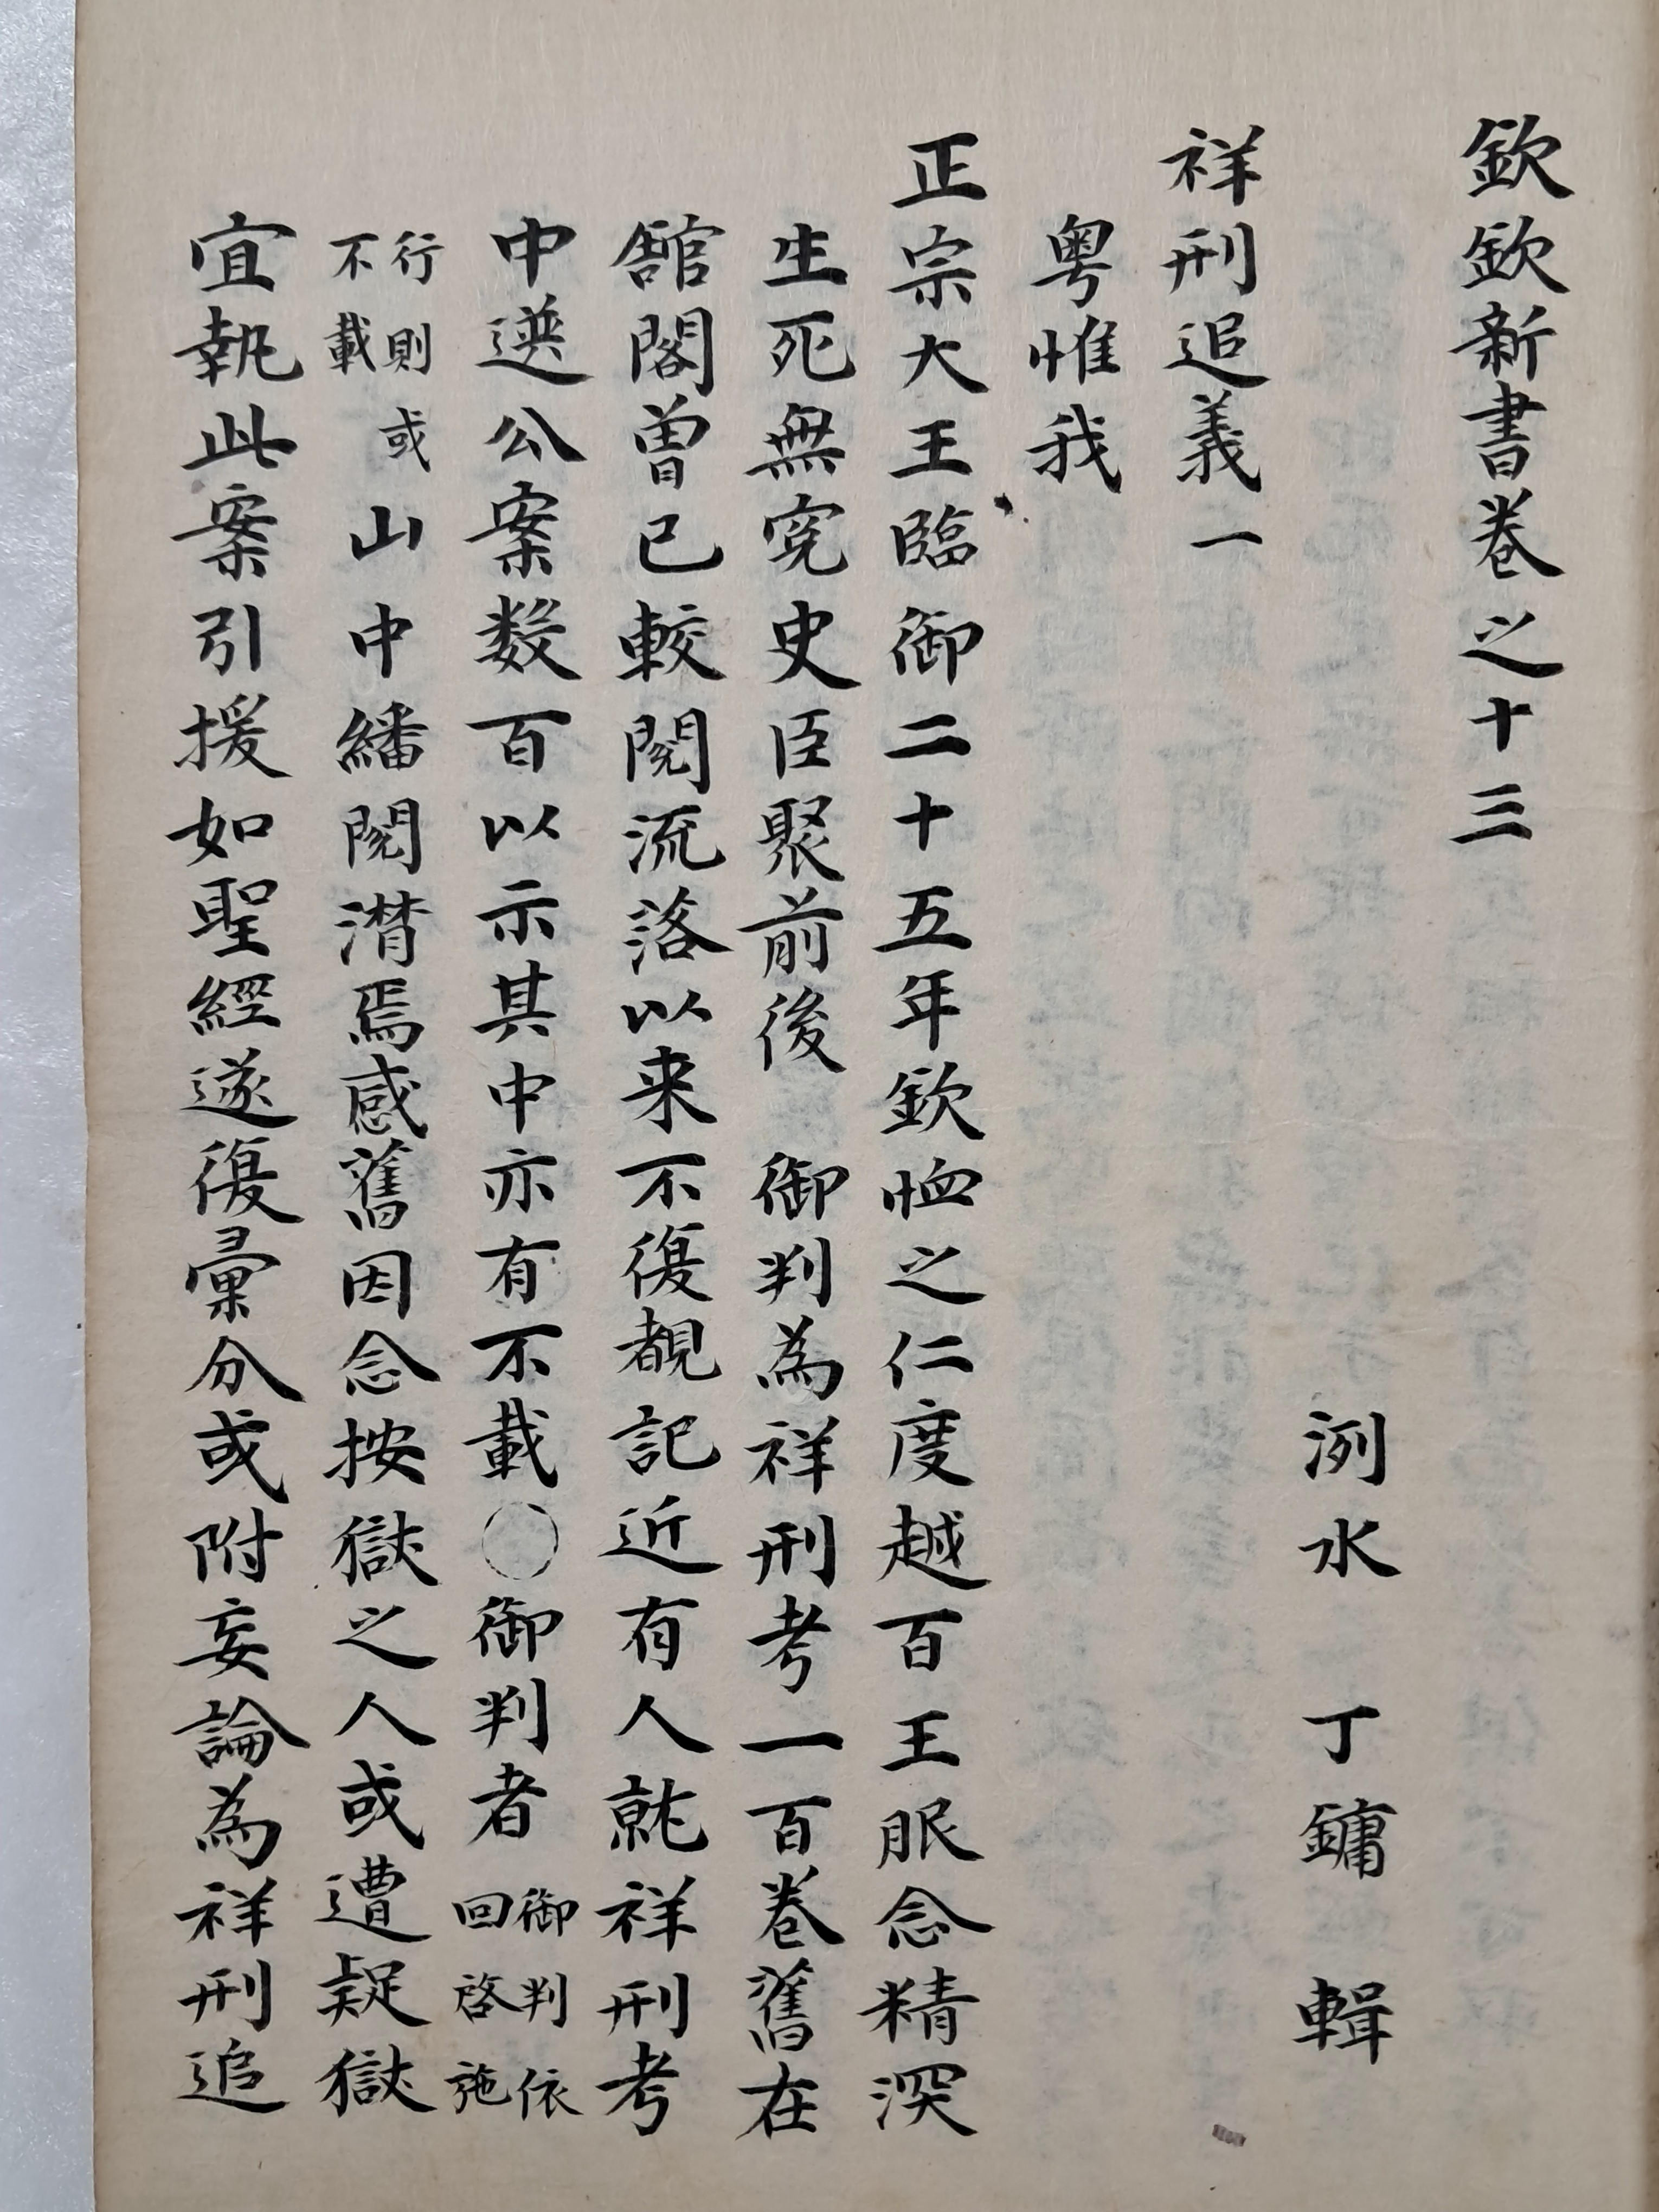 欽欽新書卷之十三
洌水 丁鏞 輯
祥刑追義一
粤惟我
正宗大王臨御二十五年欽恤之仁度越百王眂念精深
生死無寃史臣聚前後 御判為祥刑考一百卷舊在
舘閣曽已較閱流落以来不復覩記近有人就祥刑考
中選公案数百以示其中亦有不載〇御判者御判依回啓施
行則或不載山中繙閱潸焉感舊因念按獄之人或遭疑獄
宜執此案引援如聖經遂復彙分或附妄論為祥刑追